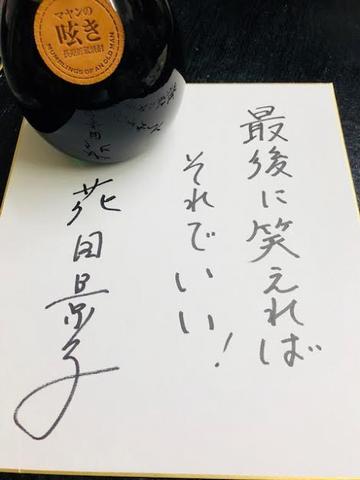 マヤンの
呟き
長期貯蔵焼酎
MUMBLINGS OF AN OLD MAN
最後に笑えれば
それでいい!
花田景子